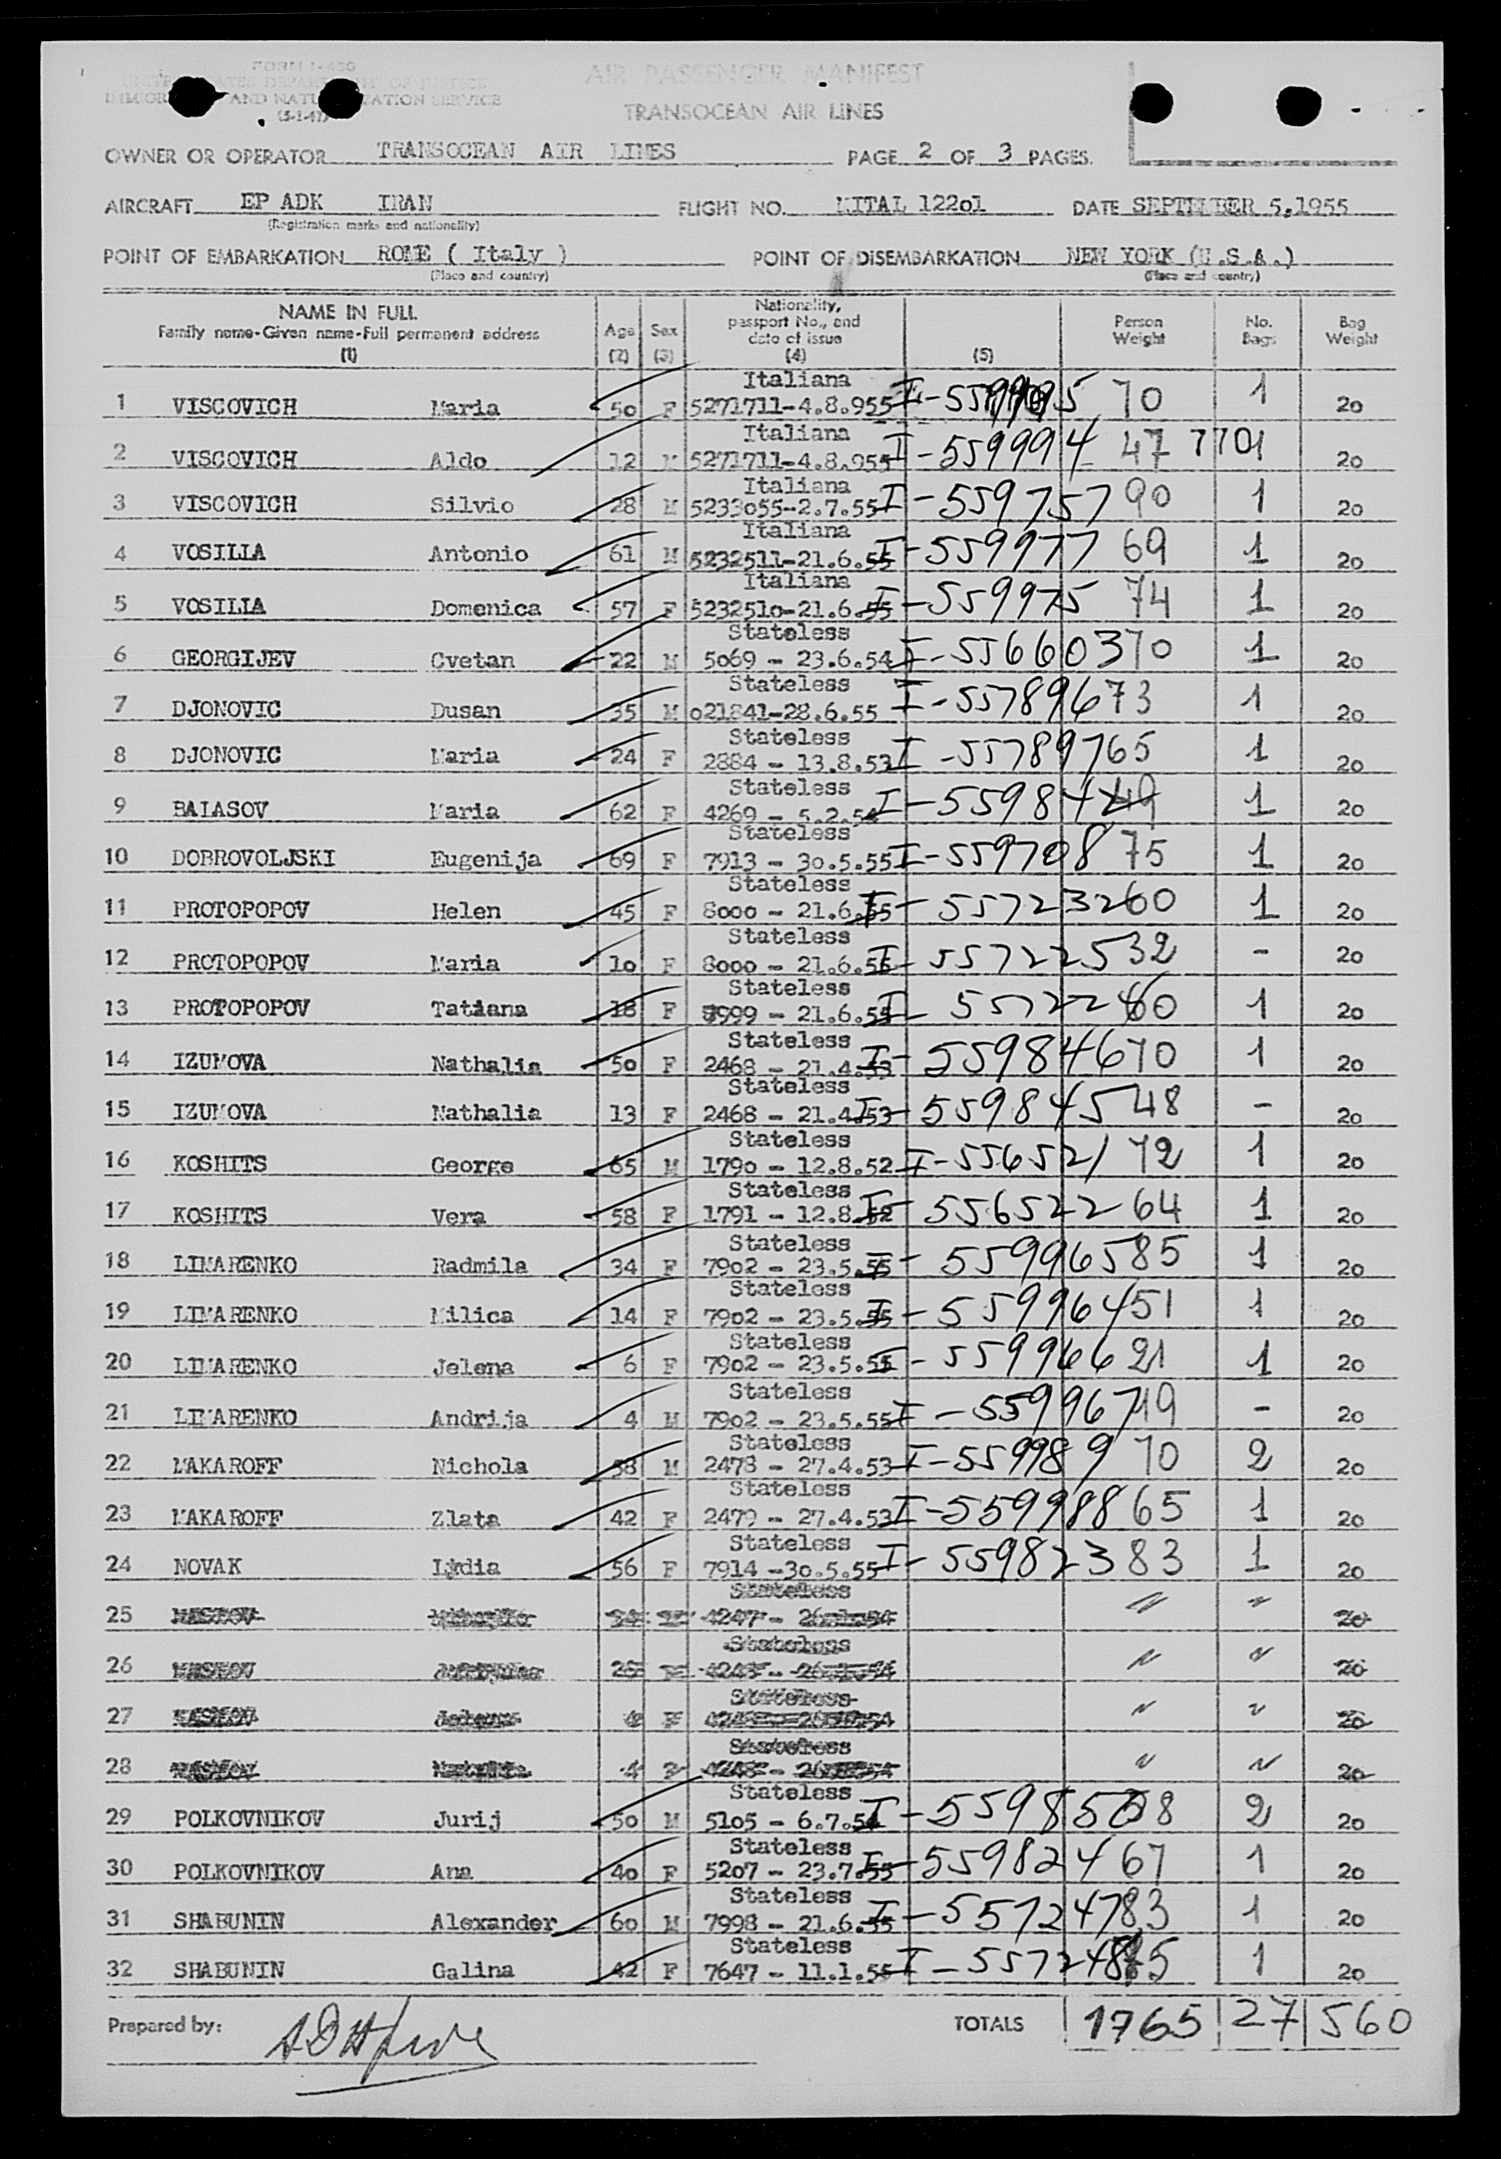 FORM I-430
UNITED STATES DEPARTMENT OF JUSTICE
AND NATURALIZATION SERVICE
(5-1-47)
AIR PASSENGER MANIFEST
TRANSOCEAN AIR LINES
OWNER OR OPERATOR TRANSOCEAN AIR LINES PAGE 2 OF 3 PAGES.
AIRCRAFT EP ADK IRAN FLIGHT NO. MITAL 12201 DATE SEPTEMBER 5,1955
(Registration marks and nationality)
POINT OF EMBARKATION ROME ( Italy ) POINT OF DISEMBARKATION NEW YORK (U.S.A.)
(Place and country) (Place and country)
NAME IN FULL Family name-Given name-Full permanent address (1) Age (2) Sex (3) Nationality, passport No., and date of issue (4) (5) Person Weight No. Bags Bag Weight
Italiana
1 VISCOVICH Maria 50 F 5271711-4.8.955 70 1 20
Italiana
2 VISCOVICH Aldo 12 M 5271711-4.8.955 I-559994 47 7701 20
Italiana
3 VISCOVICH Silvio 28 M 5233055-2.7.55 I-559757 90 1 20
Italiana
4 VOSILLA Antonio 61 M 5232511-21.6.55 I-559977 69 1 20
Italiana
5 VOSILLA Domenica 57 F 5232510-21.6.55 I-559975 74 1 20
Stateless
6 GEORGIJEV Cvetan 22 M 5069 - 23.6.54 I-556603 70 1 20
Stateless
7 DJONOVIC Dusan 35 M 021841-28.6.55 I-557896 73 1 20
Stateless
8 DJONOVIC Maria 24 F 2884 - 13.8.53 I-557897 65 1 20
Stateless
9 BALASOV Maria 62 F 4269 - 5.2.54 I-559842 49 1 20
Stateless
10 DOBROVOLJSKI Eugenija 69 F 7913 - 30.5.55 I-559708 75 1 20
Stateless
11 PROTOPOPOV Helen 45 F 8000 - 21.6.55 I-557232 60 1 20
Stateless
12 PROTOPOPOV Maria 10 F 8000 - 21.6.55 I-557225 32 - 20
Stateless
13 PROTOPOPOV Tatiana 18 F 7999 - 21.6.55 I-557224 60 1 20
Stateless
14 IZUMOVA Nathalia 50 F 2468 - 21.4.53 I-559846 70 1 20
Stateless
15 IZUMOVA Nathalia 13 F 2468 - 21.4.53 I-559845 48 - 20
Stateless
16 KOSHITS George 65 M 1790 - 12.8.52 I-556521 72 1 20
Stateless
17 KOSHITS Vera 58 F 1791 - 12.8.52 I-556522 64 1 20
Stateless
18 LIMARENKO Radmila 34 F 7902 - 23.5.55 I-559965 85 1 20
Stateless
19 LIMARENKO Milica 14 F 7902 - 23.5.55 I-559964 51 1 20
Stateless
20 LIMARENKO Jelena 6 F 7902 - 23.5.55 I-559966 21 1 20
Stateless
21 LIMARENKO Andrija 4 M 7902 - 23.5.55 I-559967 19 - 20
Stateless
22 MAKAROFF Nichola 58 M 2478 - 27.4.53 I-559989 70 2 20
Stateless
23 MAKAROFF Zlata 42 F 2479 - 27.4.53 I-559988 65 1 20
Stateless
24 NOVAK Lydia 56 F 7914 -30.5.55 I-559823 83 1 20
Stateless
25 20
Stateless
26 20
Stateless
27 20
Stateless
28 20
Stateless
29 POLKOVNIKOV Jurij 50 M 5105 - 6.7.54 2 20
Stateless
30 POLKOVNIKOV Ana 40 F 5207 - 23.7.55 I-559824 67 1 20
Stateless
31 SHABUNIN Alexander 60 M 7998 - 21.6.55 I-557247 83 1 20
Stateless
32 SHABUNIN Galina 42 F 7647 - 11.1.55 1 20
Prepared by: TOTALS 1765 27 560